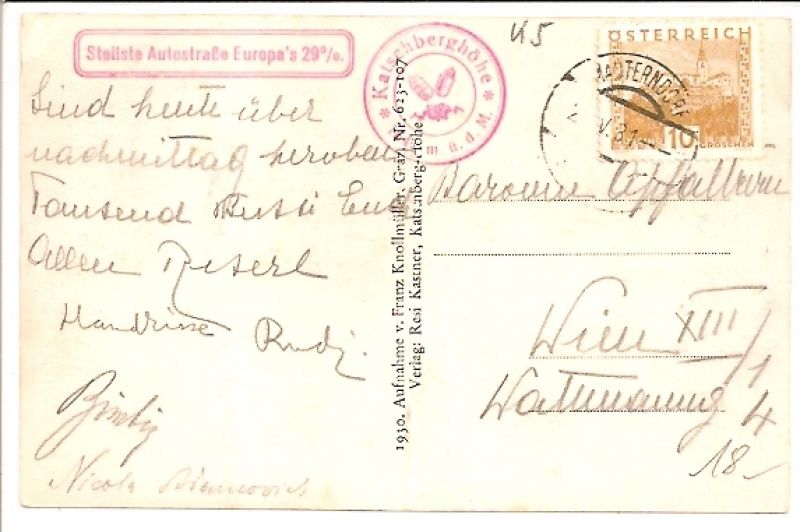 Steilste Autostraße Europa's 29%.
* Katschberghöhe *
m ü. d. M.
K5
ÖSTERREICH
10
GROSCHEN
MAUTERNDORF
Sind heute über
nachmittag heroben
Tausend Bussi Euch
Allen Reserl
Handküsse Rudi.
Nicola
1930. Aufnahme v. Franz Knollmüller, Graz. Nr. 623-107
Verlag: Resi Kastner, Katschberg-Höhe
Baronin Apfaltern
Wien XIII/1
Wattmanng 4
18-